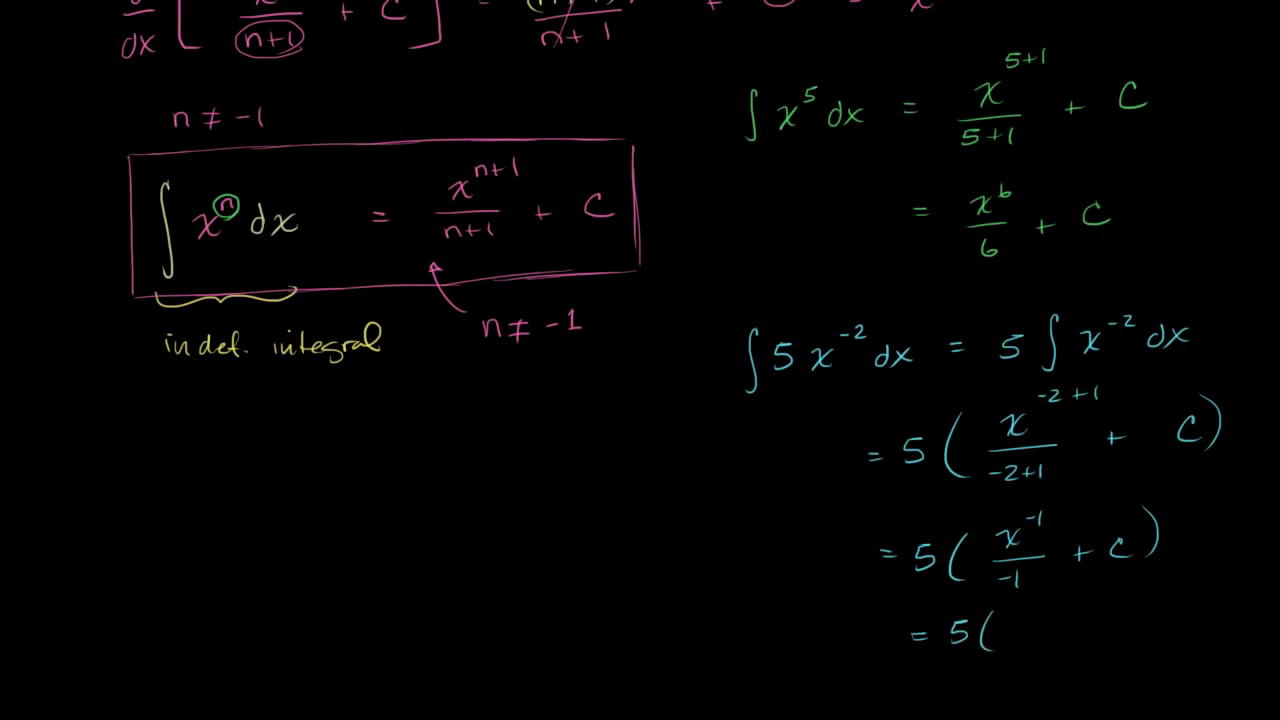 d/dx [ x/(n+1) + C ] = /(n+1) + = x
n ≠ -1
∫ xⁿ dx = xⁿ⁺¹/(n+1) + C
n ≠ -1
indef. integral
∫ x⁵ dx = x⁵⁺¹/(5+1) + C
= x⁶/6 + C
∫ 5 x⁻² dx = 5 ∫ x⁻² dx
= 5 ( x⁻²⁺¹/(-2+1) + C )
= 5 ( x⁻¹/-1 + C )
= 5 (